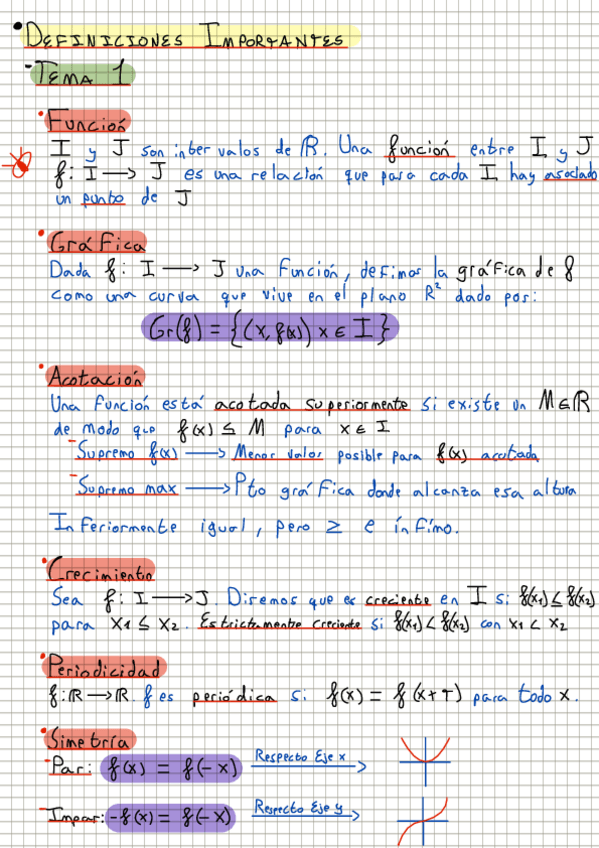 • DEFINICIONES IMPORTANTES
- TEMA 1
• Función
I y J son intervalos de ℝ. Una función entre I y J
f: I → J es una relación que para cada I hay asociado
un punto de J
• Gráfica
Dada f: I → J una función, defimos la gráfica de f
como una curva que vive en el plano R² dado por:
Gr(f) = {(x, f(x)) x ∈ I}
• Acotación
Una función está acotada superiormente si existe un M∈ℝ
de modo que f(x) ≤ M para x ∈ I
- Supremo f(x) → Menor valor posible para f(x) acotada
- Supremo max → Pto gráfica donde alcanza esa altura
Inferiormente igual, pero ≥ e ínfimo.
• Crecimiento
Sea f: I → J. Diremos que es creciente en I si f(x₁) ≤ f(x₂)
para x₁ ≤ x₂. Estrictamente creciente si f(x₁) < f(x₂) con x₁ < x₂
• Periodicidad
f: ℝ → ℝ. f es periódica si f(x) = f(x+T) para todo x.
• Simetría
- Par: f(x) = f(-x) Respecto Eje x →
- Impar: -f(x) = f(-x) Respecto Eje y →